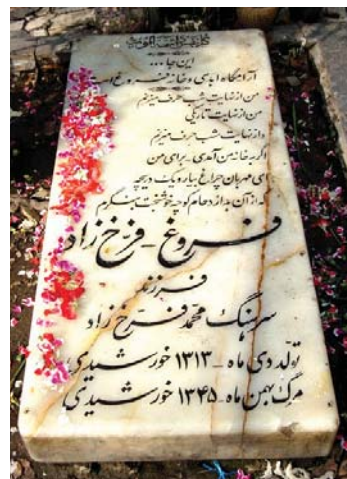 كل نفس ذائقة الموت
این جا ...
آرامگاه ابدی و خانه فروغ است
من از نهایت شب حرف میزنم
من از نهایت تاریکی
و از نهایت شب حرف میزنم
اگر به خانه من آمدی - برای من
ای مهربان چراغ بیار و یک دریچه
که از آن به ازدحام کوچه خوشبخت بنگرم
فروغ - فرّخ زاد
فرزند
سرهنگ محمد فرّخ زاد
تولّد دی ماه - ۱۳۱۳ خورشیدی
مرگ بهمن ماه - ۱۳۴۵ خورشیدی